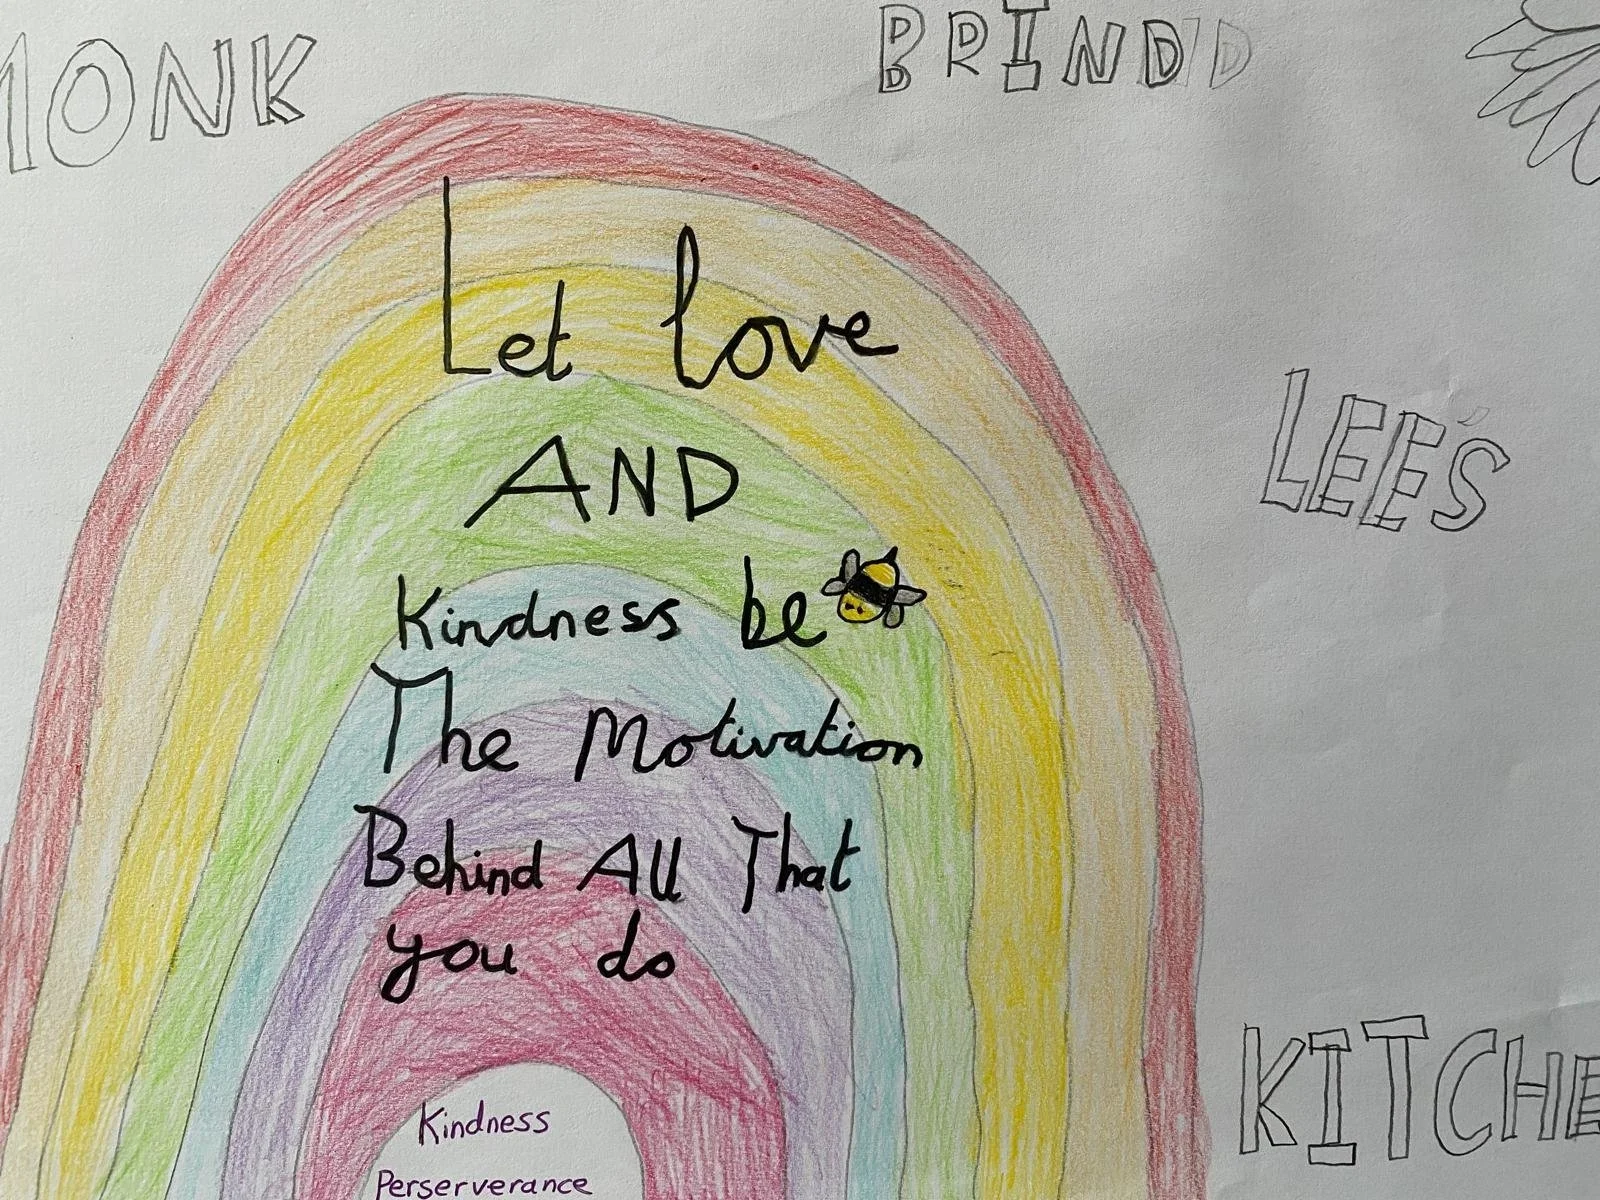 MONK
BRINDD
Let love
AND
Kindness be
The Motivation
Behind All That
you do
LEE'S
KITCHE
Kindness
Perserverance